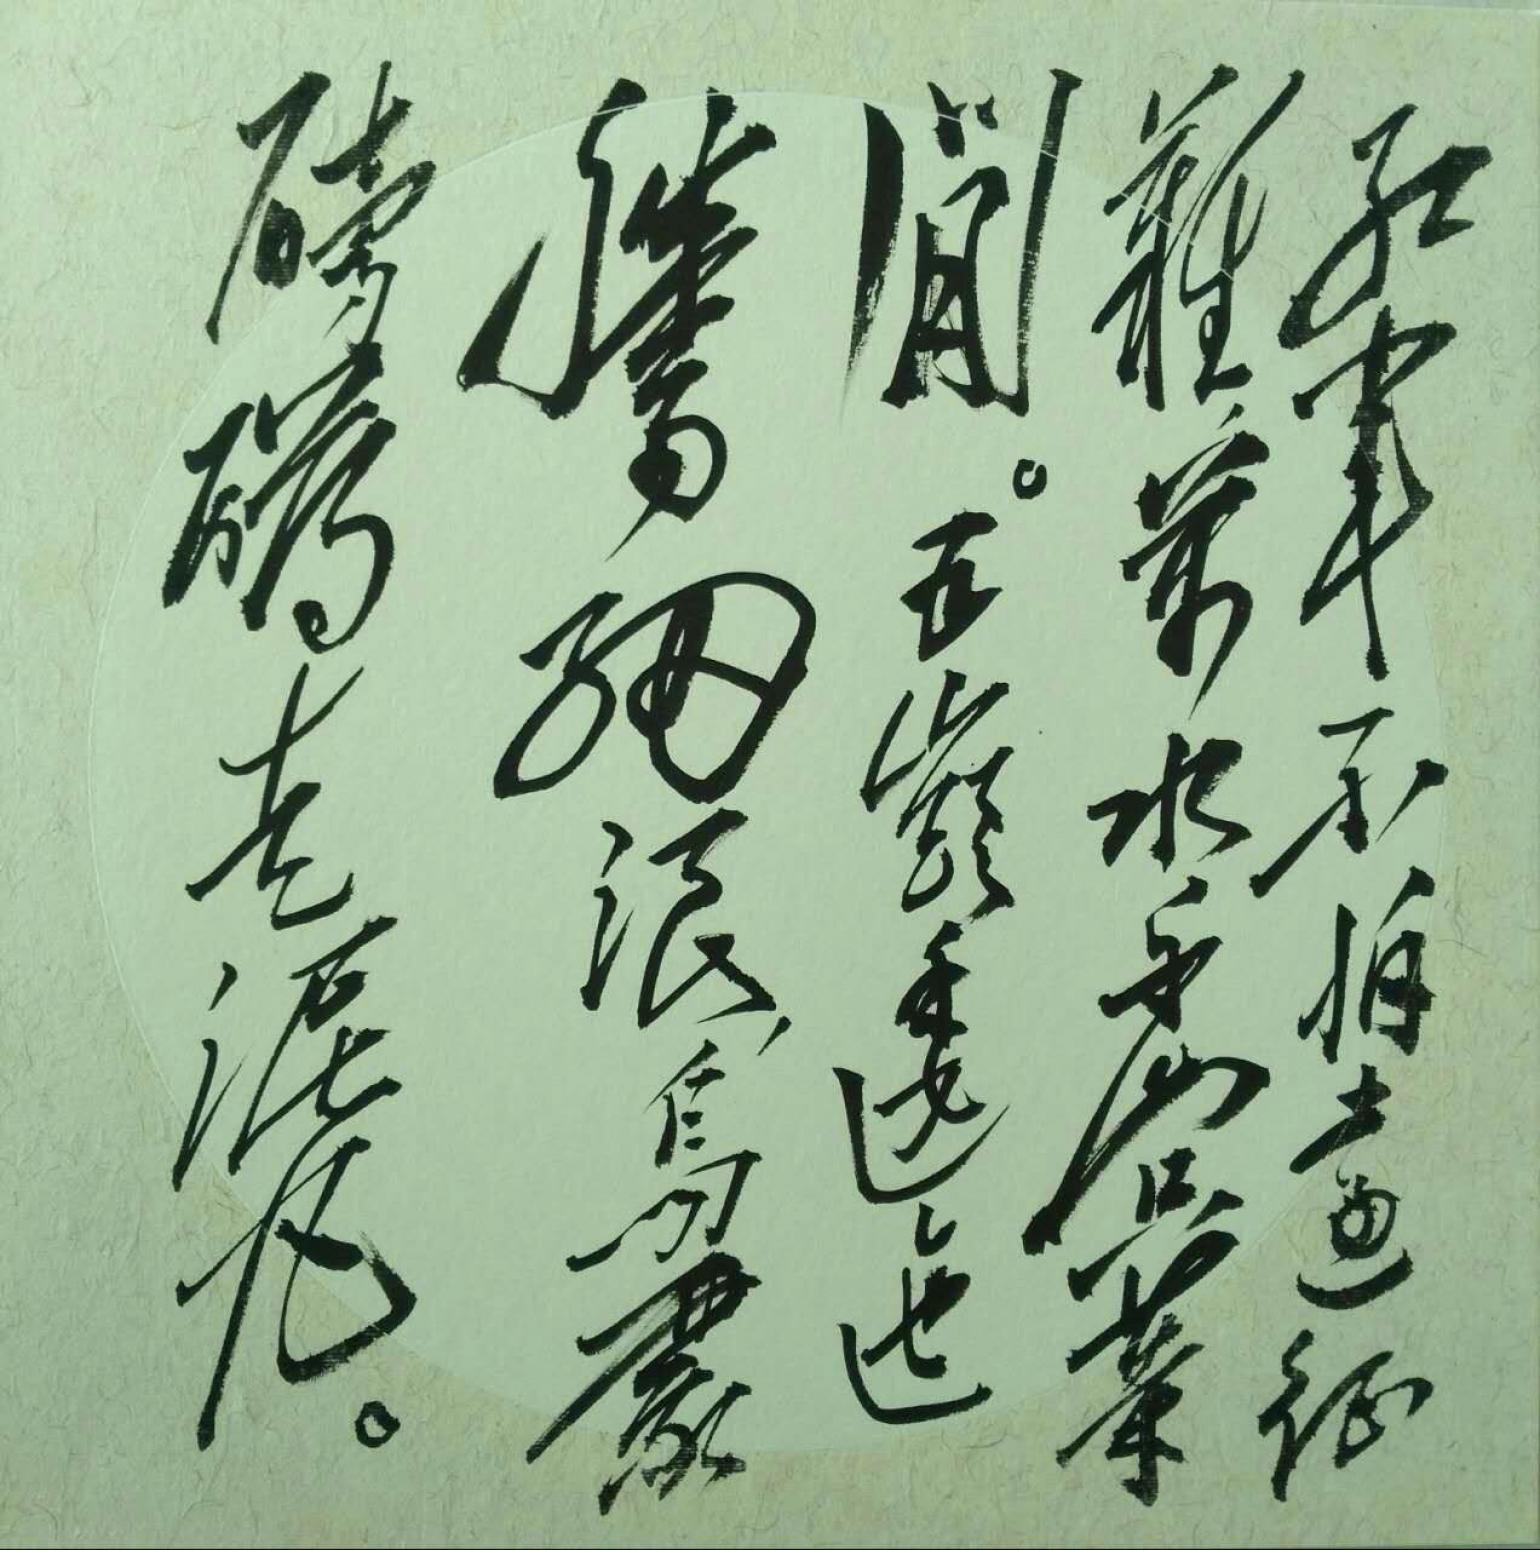 紅軍不怕遠征
難萬水千山只等
閒。五嶺逶迤
騰細浪，烏蒙
磅礴走泥丸。